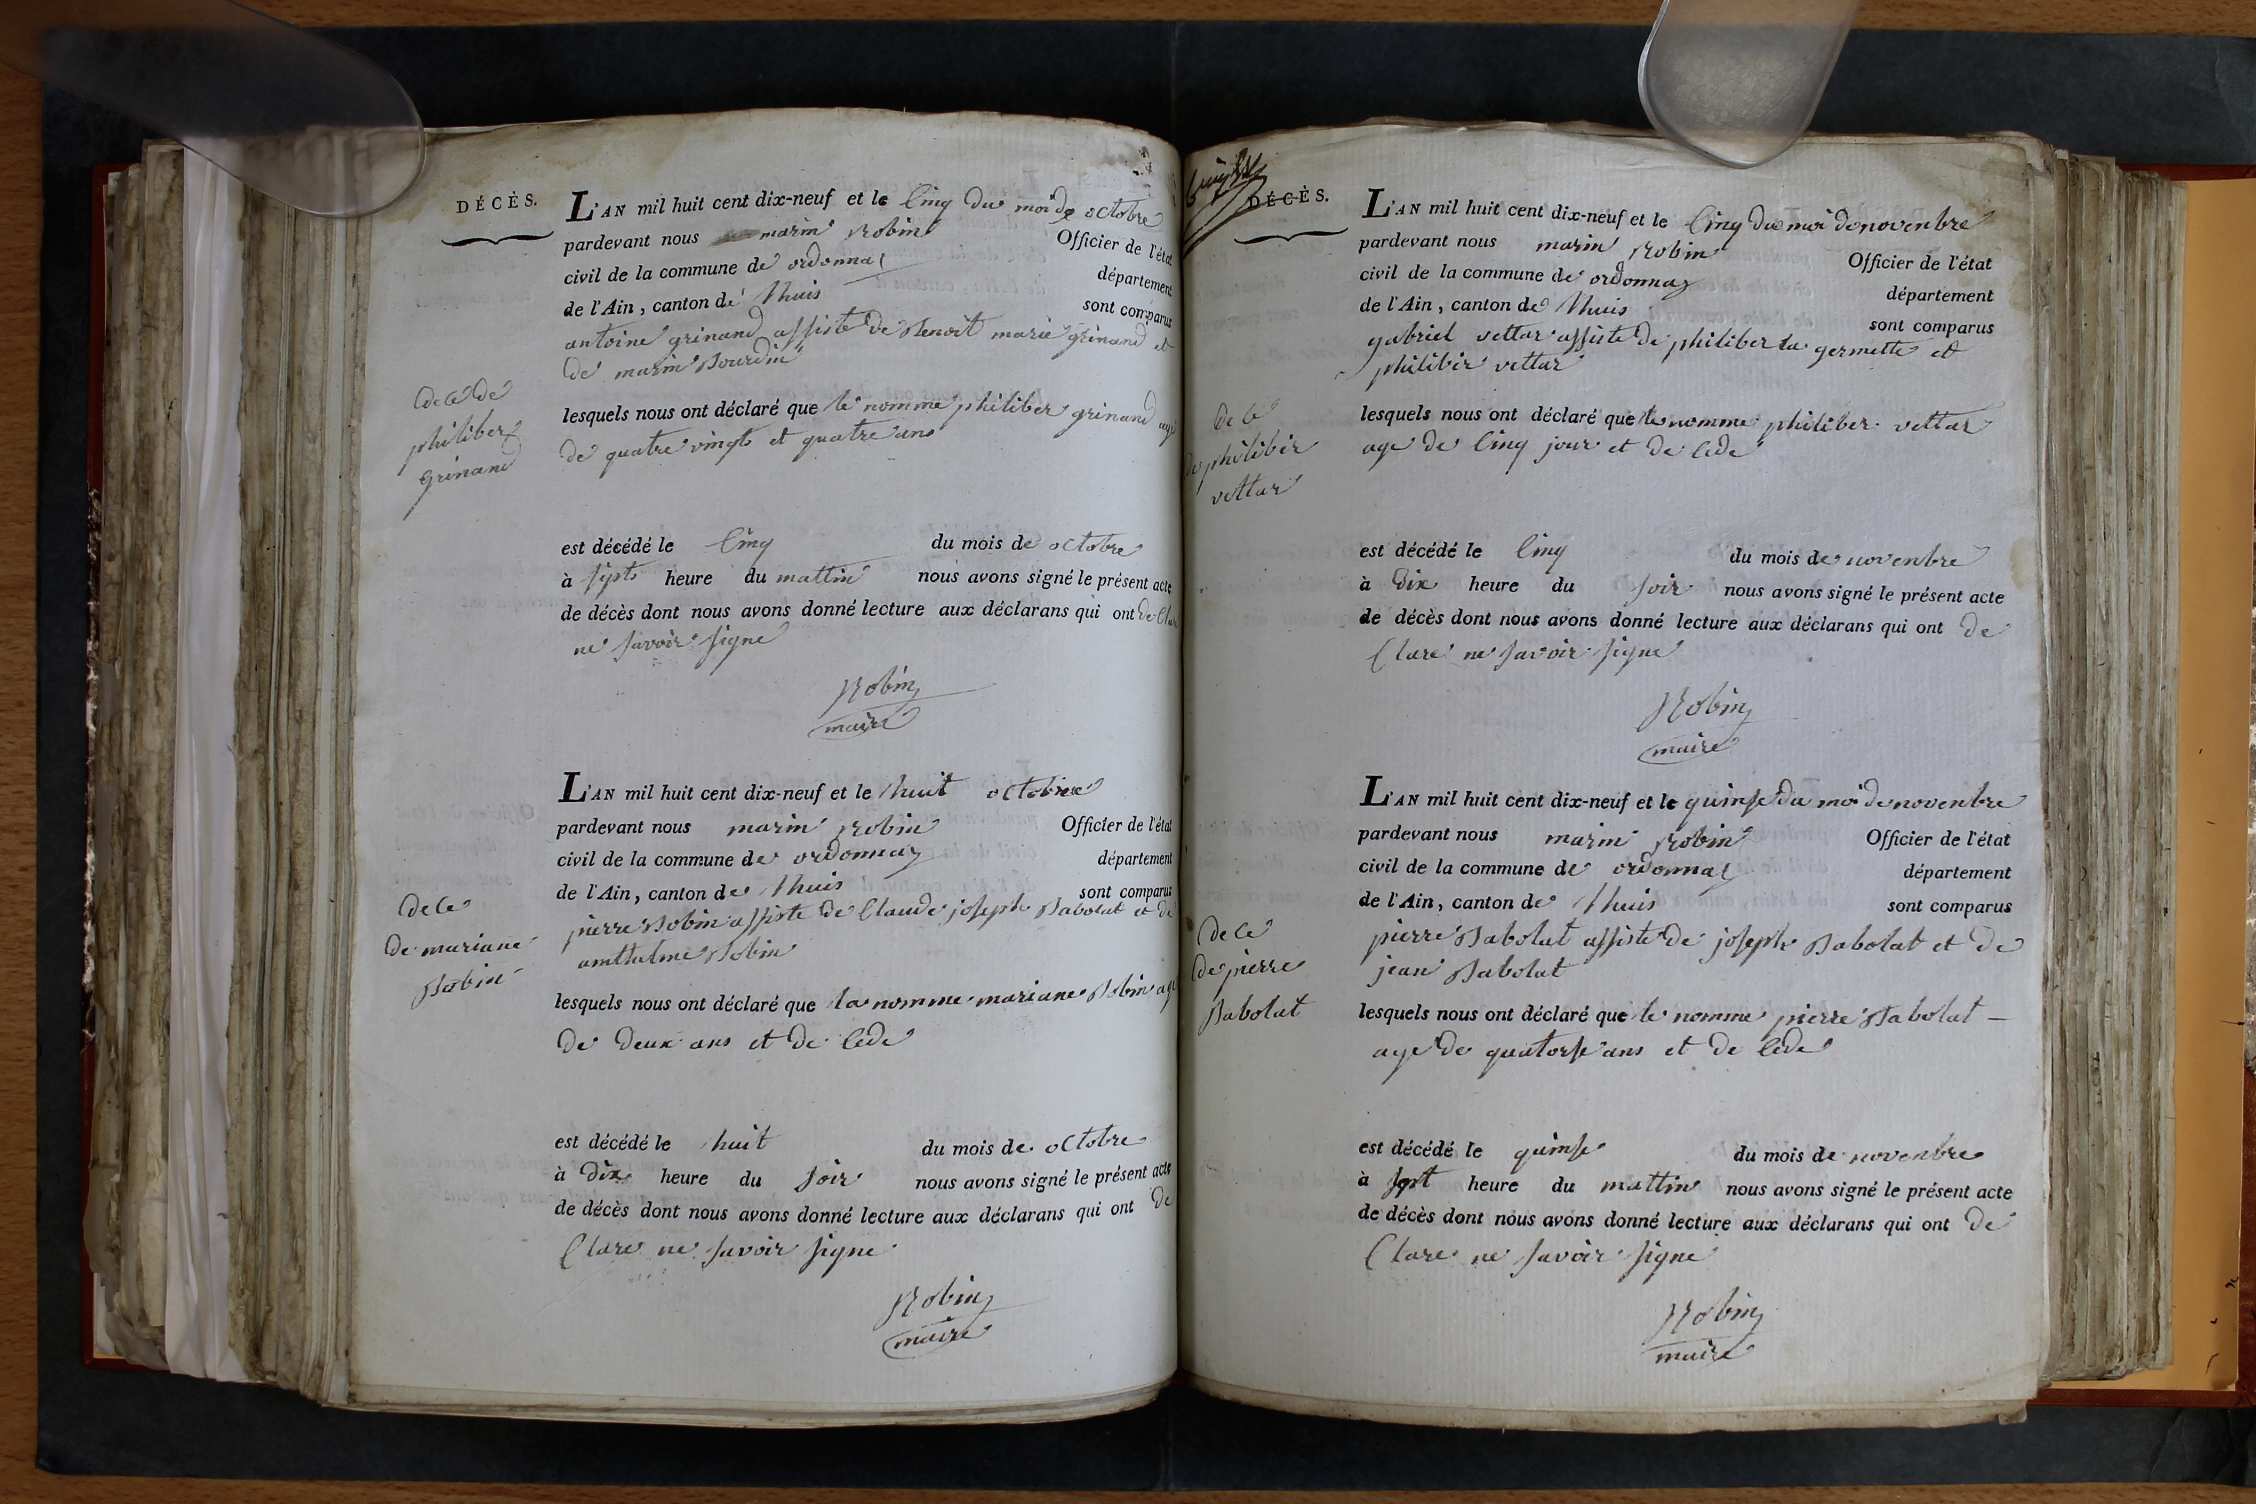 DÉCÈS.
L'AN mil huit cent dix-neuf et le cinq du moi de octobre
pardevant nous marin Robin Officier de l'état
civil de la commune de ordonnaz département
de l'Ain, canton de lhuis sont comparus
antoine grinand assiste de Benoit marie grinand et
de marin Bourdin
decé de
philiber
grinand
lesquels nous ont déclaré que le nomme philiber grinand age
de quatre vingts et quatre ans
est décédé le cinq du mois de octobre
à sept heure du mattin nous avons signé le présent acte
de décès dont nous avons donné lecture aux déclarans qui ont de Clare
ne savoir signe
Robin
maire
L'AN mil huit cent dix-neuf et le huit octobre
pardevant nous marin Robin Officier de l'état
civil de la commune de ordonnaz département
de l'Ain, canton de lhuis sont comparus
pierre Bobin assiste de Claude joseph Babolat et de
amthelme Bobin
dece
de mariane
Babin
lesquels nous ont déclaré que la nomme mariane Bobin age
de deux ans et de cede
est décédé le huit du mois de octobre
à dix heure du soir nous avons signé le présent acte
de décès dont nous avons donné lecture aux déclarans qui ont de
Clare ne savoir signe
Robin
maire
DÉCÈS.
L'AN mil huit cent dix-neuf et le cinq du moi de novenbre
pardevant nous marin Robin Officier de l'état
civil de la commune de ordonnaz département
de l'Ain, canton de lhuis sont comparus
gabriel vettar assiste de philiber la germette et
philibir vettar
de cé
de philibir
vettar
lesquels nous ont déclaré que le nomme philiber vettar
age de cinq jour et de cede
est décédé le cinq du mois de novenbre
à dix heure du soir nous avons signé le présent acte
de décès dont nous avons donné lecture aux déclarans qui ont de
Clare ne savoir signe
Robin
maire
L'AN mil huit cent dix-neuf et le quinse du moi de novenbre
pardevant nous marin Robin Officier de l'état
civil de la commune de ordonnaz département
de l'Ain, canton de lhuis sont comparus
pierre Babolat assiste de joseph Babolat et de
jean Babolat
de ce
de pierre
Babolat
lesquels nous ont déclaré que le nomme pierre Babolat —
age de quatorse ans et de cede
est décédé le quinse du mois de novenbre
à sept heure du mattin nous avons signé le présent acte
de décès dont nous avons donné lecture aux déclarans qui ont de
Clare ne savoir signe
Robin
maire